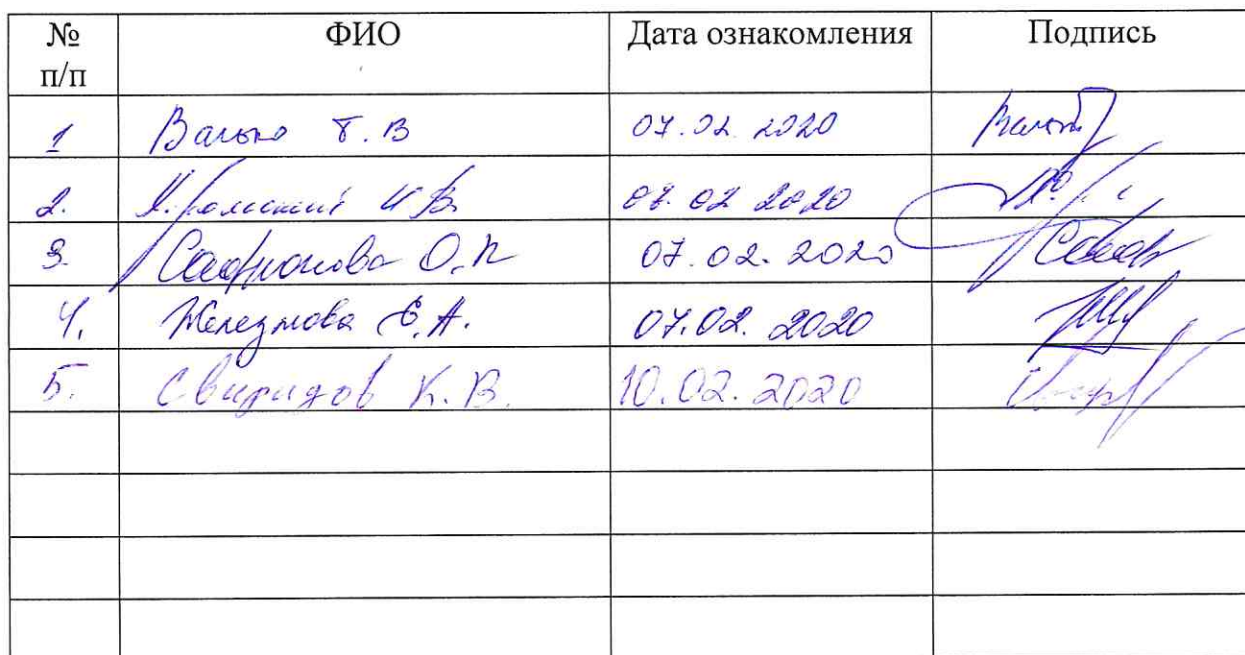 № п/п ФИО Дата ознакомления Подпись
1 Валько Т. В 07.02.2020
2. И. В. 07.02.2020
3. Сафронова О.П 07.02.2020
4. Железнова Е.А. 07.02.2020
5. Свиридов К.В. 10.02.2020